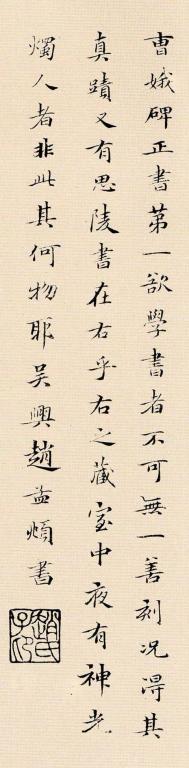 曹娥碑正書第一欲學書者不可無一善刻况得其
真蹟又有思陵書在右乎右之藏室中夜有神光
燭人者非此其何物耶吴興趙孟頫書
趙氏子印